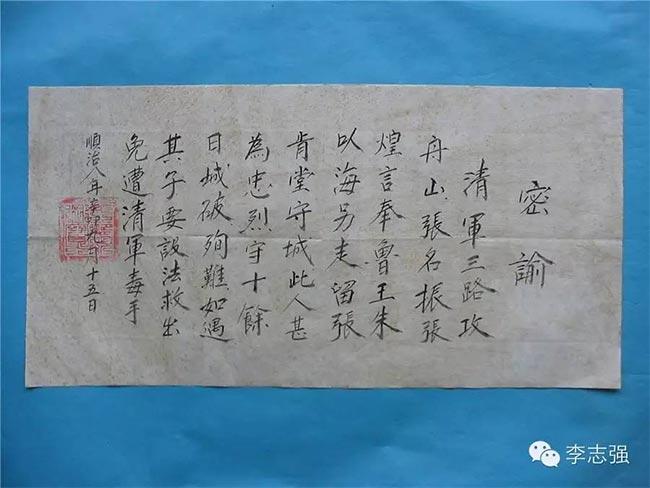 密諭
清軍三路攻
舟山張名振張
煌言奉魯王朱
以海另走留張
肯堂守城此人甚
為忠烈守十餘
日城破殉難如遇
其子要設法救出
免遭清軍毒手
順治八年辛卯九月十五日
李志强